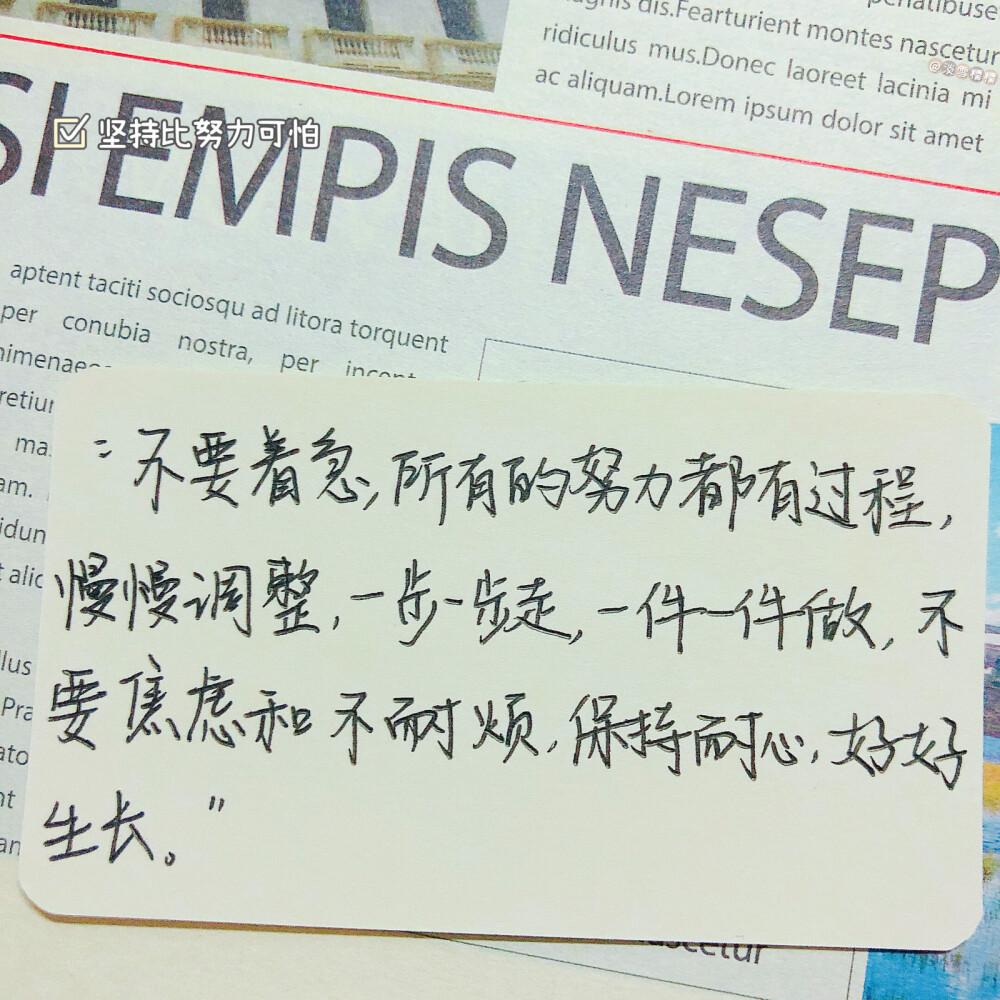 agnis dis.Fearturient montes nascetur
ridiculus mus.Donec laoreet lacinia mi
ac aliquam.Lorem ipsum dolor sit amet
坚持比努力可怕
SI EMPIS NESEP
aptent taciti sociosqu ad litora torquent
per conubia nostra, per
“不要着急,所有的努力都有过程,
慢慢调整,一步一步走,一件一件做,不
要焦虑和不耐烦,保持耐心,好好
生长。”